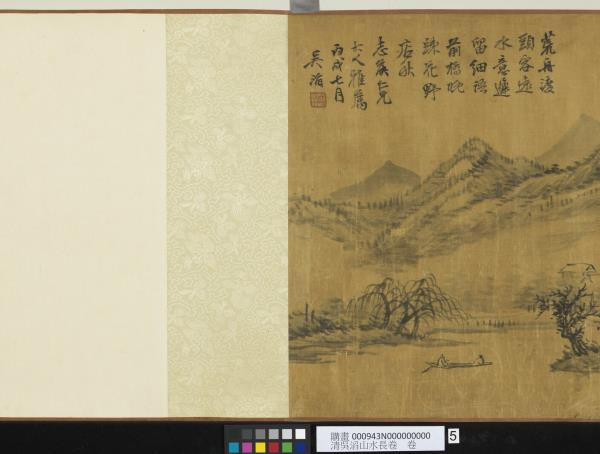 荒舟渡
頭客遠
水意遲
留細語
前橋晚
疎花野
店秋
志篤仁兄
大人雅屬
丙戌七月
吳滔
購畫 000943N000000000
清吳滔山水長卷　卷
5